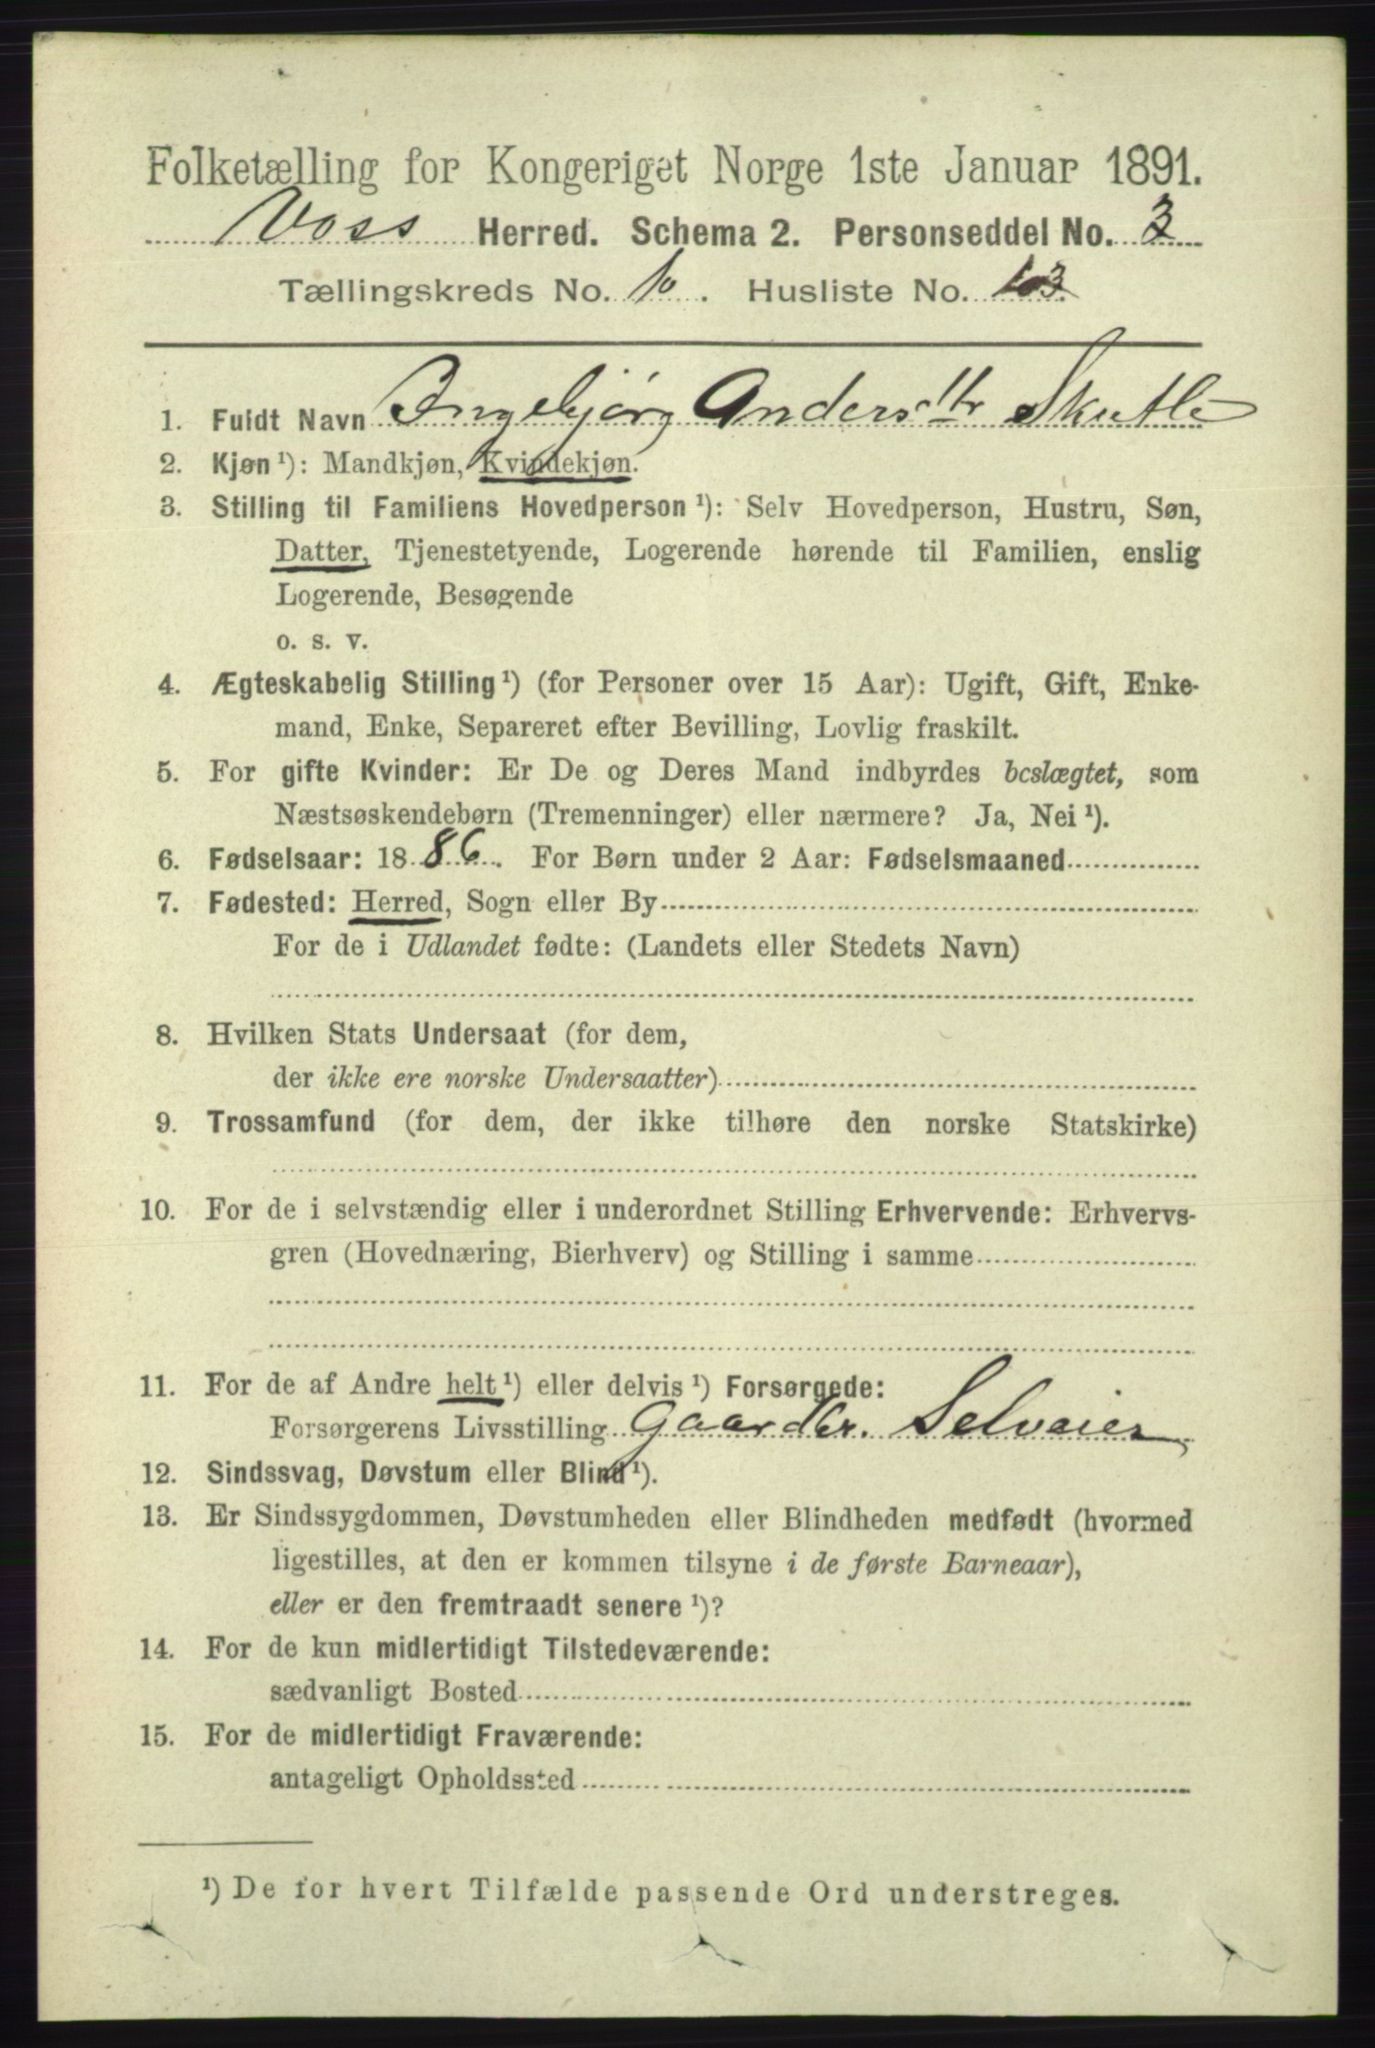 Folketælling for Kongeriget Norge 1ste Januar 1891.
Voss Herred. Schema 2. Personseddel No. 3
Tællingskreds No. 10. Husliste No. 103
1. Fuldt Navn Ingebjørg Andersdtr Skutle
2. Kjøn ¹): Mandkjøn, Kvindekjøn.
3. Stilling til Familiens Hovedperson ¹): Selv Hovedperson, Hustru, Søn,
Datter, Tjenestetyende, Logerende hørende til Familien, enslig
Logerende, Besøgende
o. s. v.
4. Ægteskabelig Stilling ¹) (for Personer over 15 Aar): Ugift, Gift, Enke-
mand, Enke, Separeret efter Bevilling, Lovlig fraskilt.
5. For gifte Kvinder: Er De og Deres Mand indbyrdes beslægtet, som
Næstsøskendebørn (Tremenninger) eller nærmere? Ja, Nei ¹).
6. Fødselsaar: 1886. For Børn under 2 Aar: Fødselsmaaned
7. Fødested: Herred, Sogn eller By
For de i Udlandet fødte: (Landets eller Stedets Navn)
8. Hvilken Stats Undersaat (for dem,
der ikke ere norske Undersaatter)
9. Trossamfund (for dem, der ikke tilhøre den norske Statskirke)
10. For de i selvstændig eller i underordnet Stilling Erhvervende: Erhvervs-
gren (Hovednæring, Bierhverv) og Stilling i samme
11. For de af Andre helt ¹) eller delvis ¹) Forsørgede:
Forsørgerens Livsstilling Gaardbr. Selveier
12. Sindssvag, Døvstum eller Blind ¹).
13. Er Sindssygdommen, Døvstumheden eller Blindheden medfødt (hvormed
ligestilles, at den er kommen tilsyne i de første Barneaar),
eller er den fremtraadt senere ¹)?
14. For de kun midlertidigt Tilstedeværende:
sædvanligt Bosted
15. For de midlertidigt Fraværende:
antageligt Opholdssted
¹) De for hvert Tilfælde passende Ord understreges.